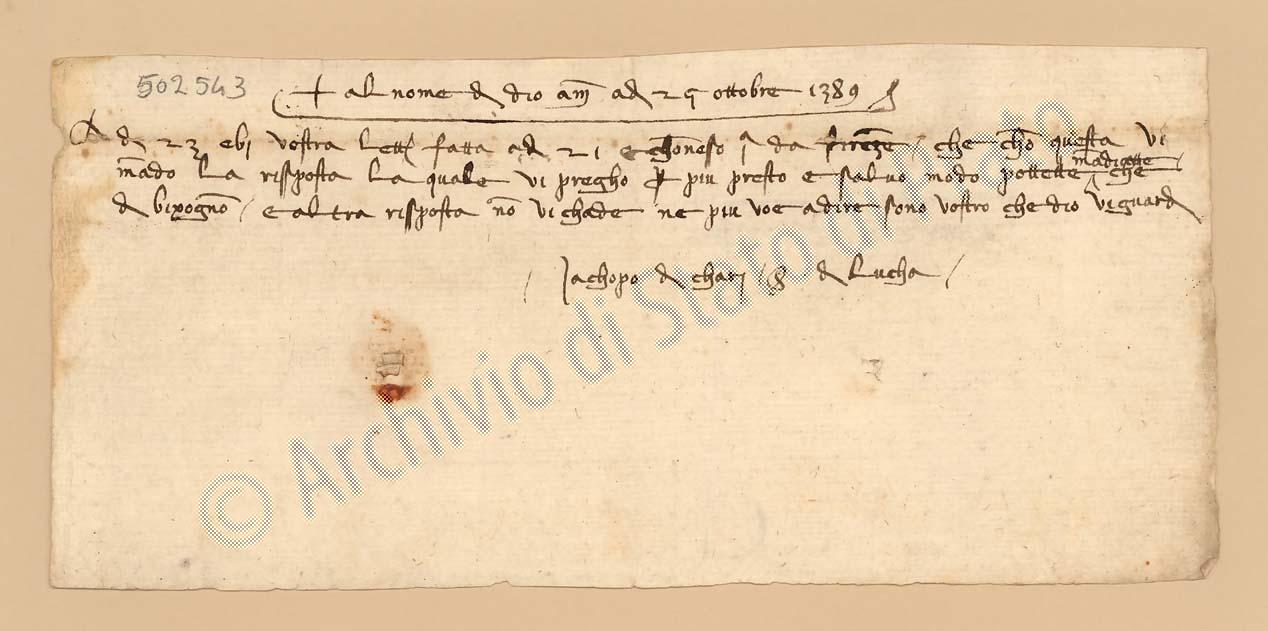 502543
+ al nome d dio am ad 25 ottobre 1389
A d 23 ebi vostra lett fatta ad 21 e choneso j da firenze / che cho questa vi
mado la rissposta la quale vi pregho p piu presto e salvo modo pottette madiatte che
d bixogno / e altra rissposta no vi chade ne piu voe a dire sono vostro che dio vi guard
/ Jachopo d chari d Lucha /
© Archivio di Stato di Prato